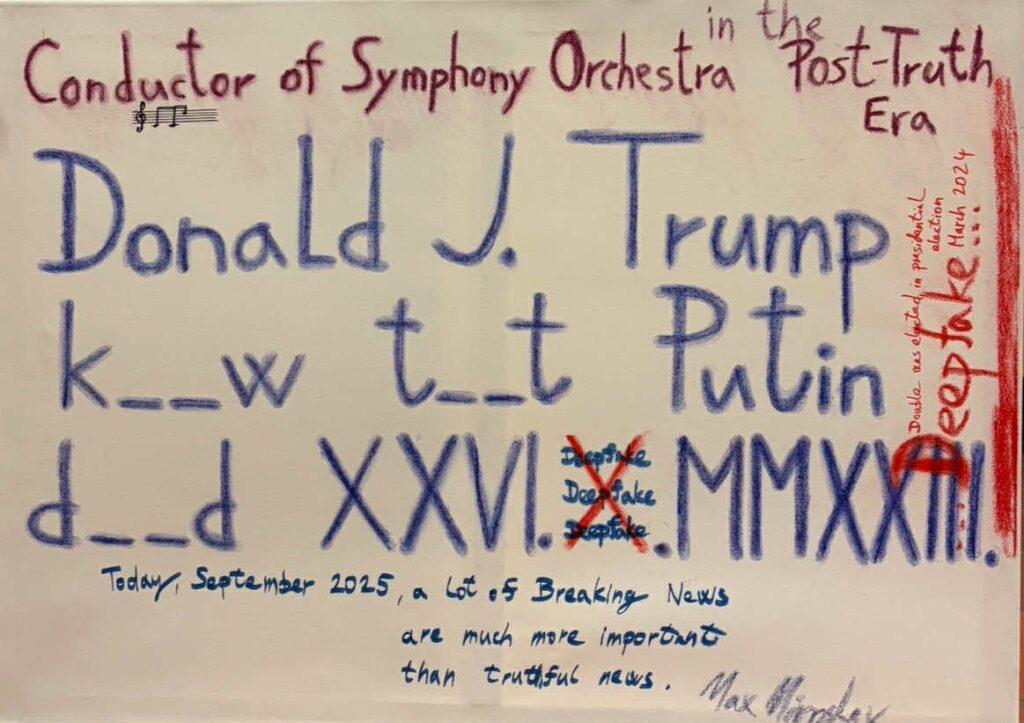 in the
Conductor of Symphony Orchestra Post-Truth
Era
Donald J. Trump
k__w t__t Putin
d__d XXVI.X.MMXXIII.
Deepfake
Deepfake
Deepfake
Double was elected in presidential
election
March 2024
Deepfake...
Today, September 2025, a lot of Breaking News
are much more important
than truthful news.
Max